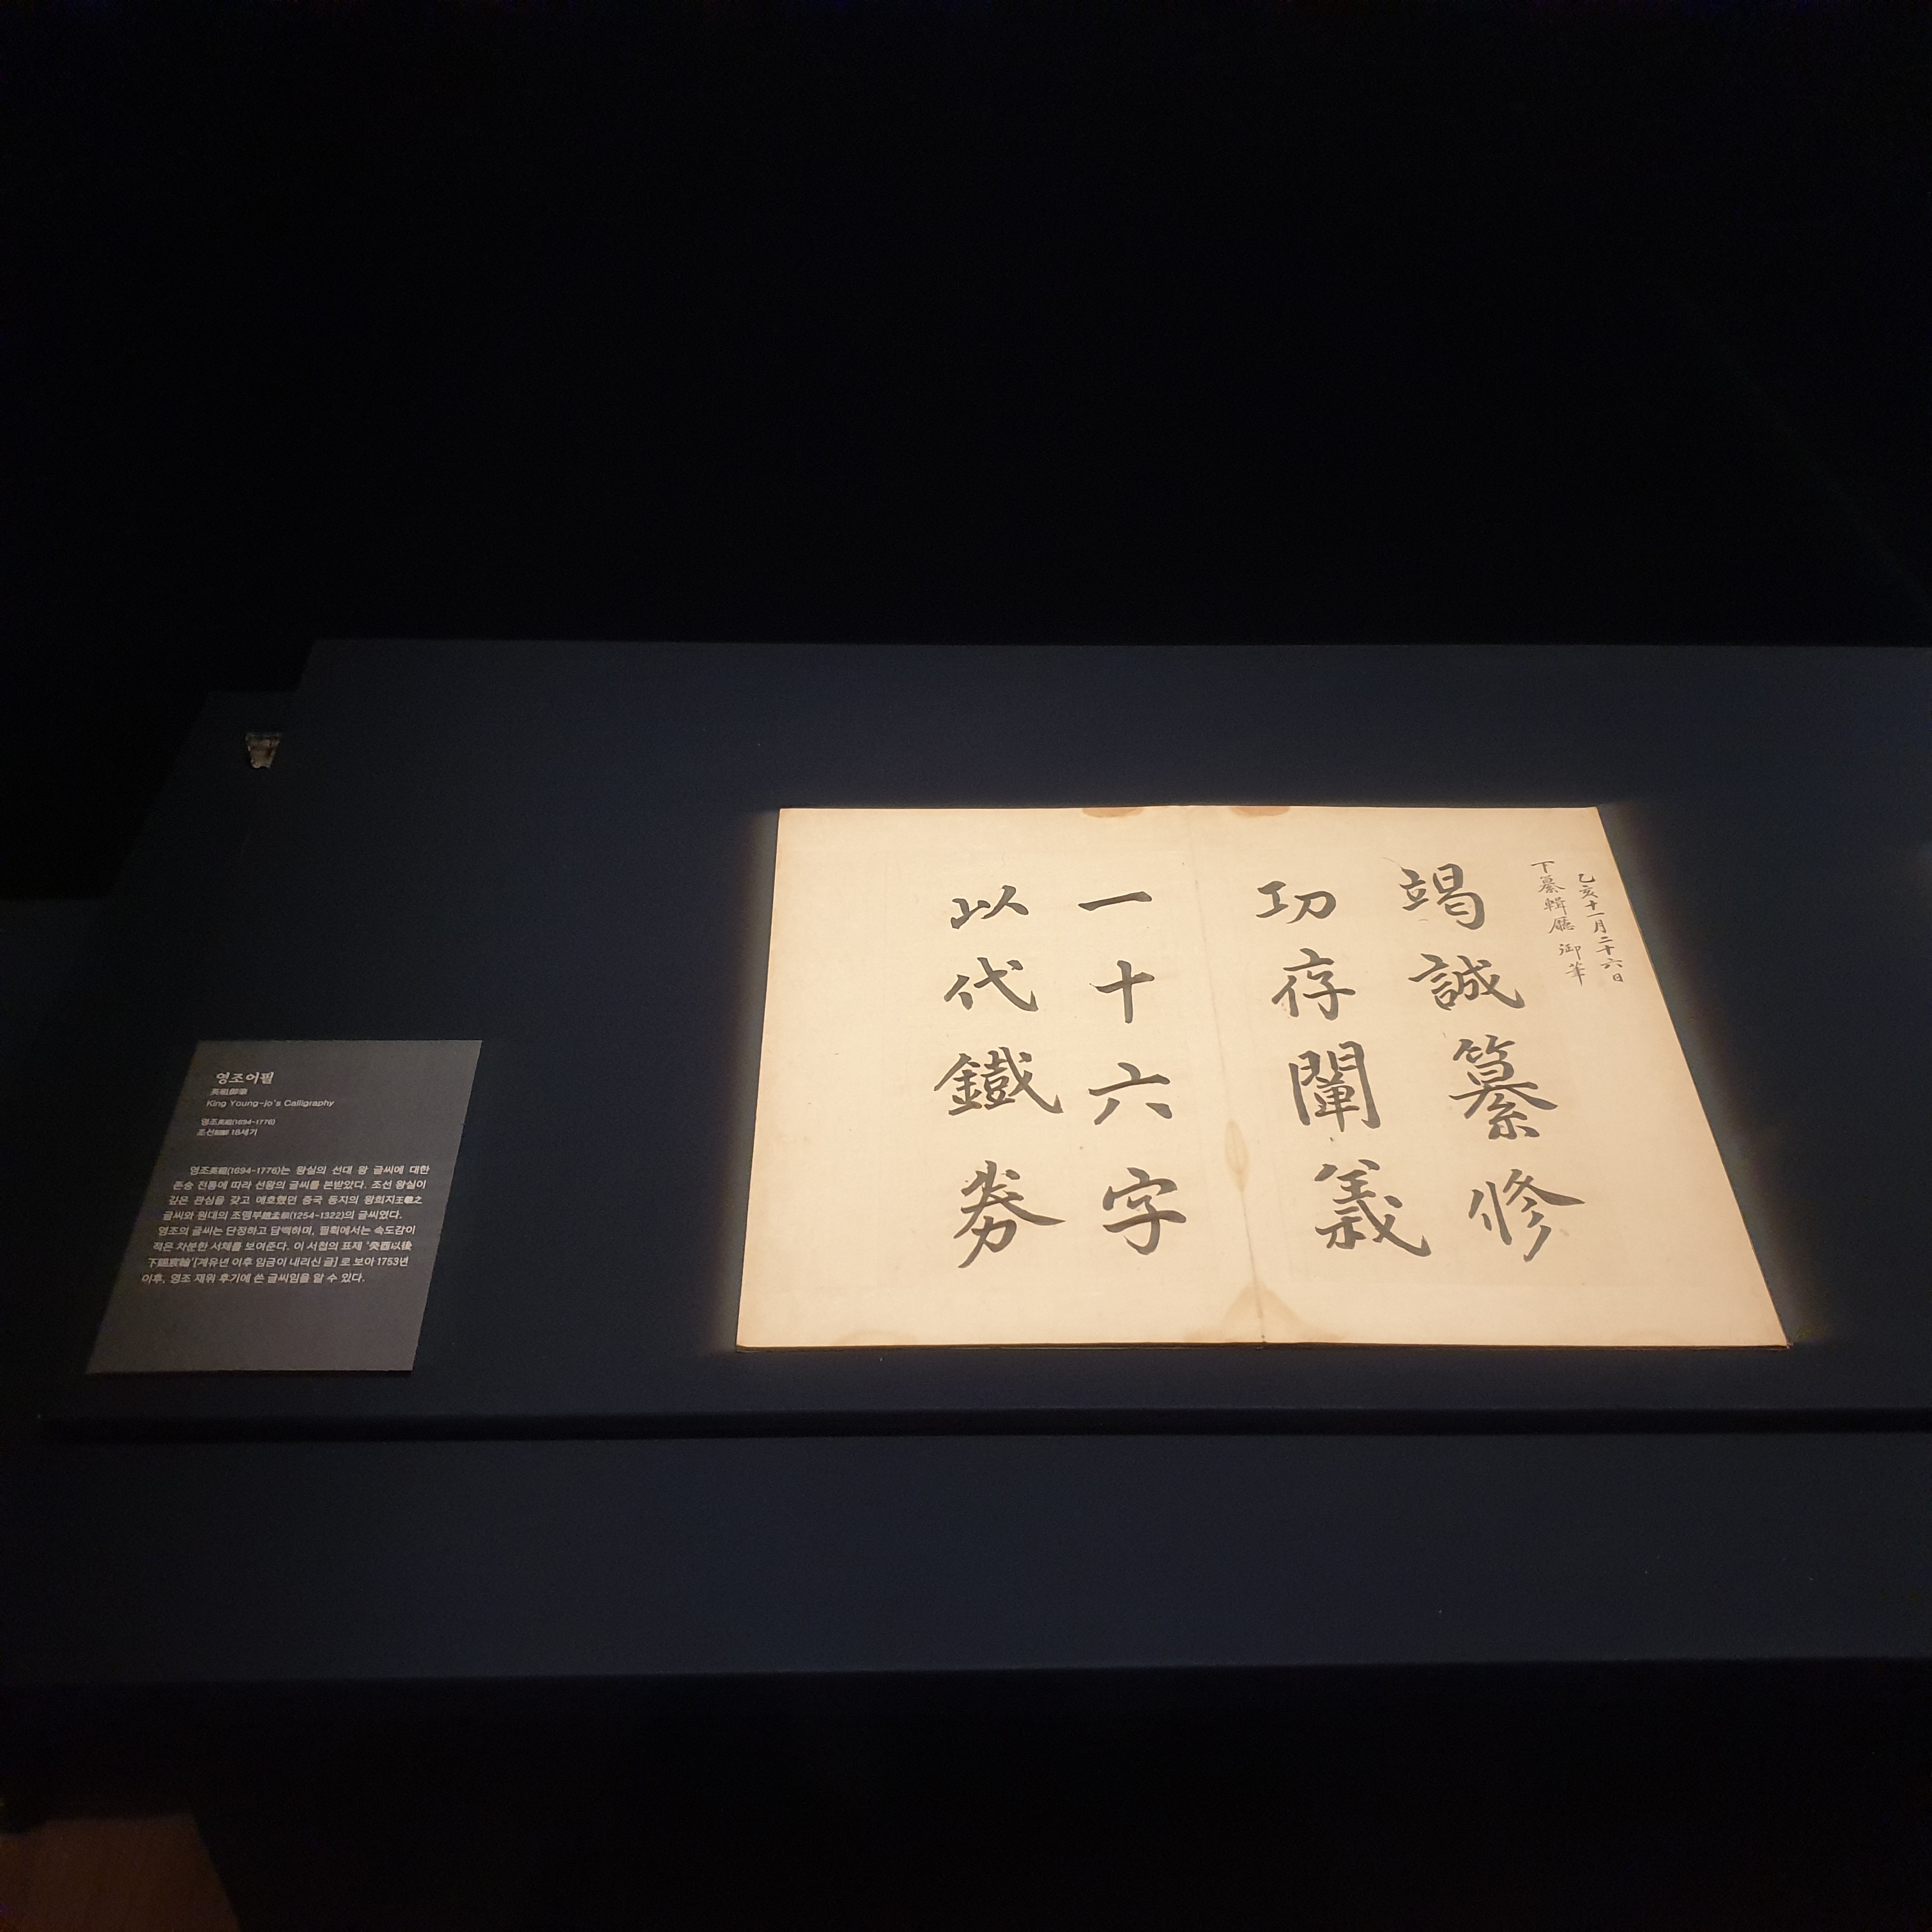 영조어필
英祖御筆
King Young-jo's Calligraphy
영조英祖(1694-1776)
조선朝鮮 18세기
영조英祖(1694-1776)는 왕실의 선대 왕 글씨에 대한
존숭 전통에 따라 선왕의 글씨를 본받았다. 조선 왕실이
깊은 관심을 갖고 애호했던 중국 동진의 왕희지王羲之
글씨와 원대의 조맹부趙孟頫(1254-1322)의 글씨였다.
영조의 글씨는 단정하고 담백하며, 필획에서는 속도감이
적은 차분한 서체를 보여준다. 이 서첩의 표제 '癸酉以後
下賜宸翰'[계유년 이후 임금이 내리신 글]로 보아 1753년
이후, 영조 재위 후기에 쓴 글씨임을 알 수 있다.
乙亥十一月二十六日
下纂輯廳 御筆
竭誠纂修
功存闡義
一十六字
以代鐵券